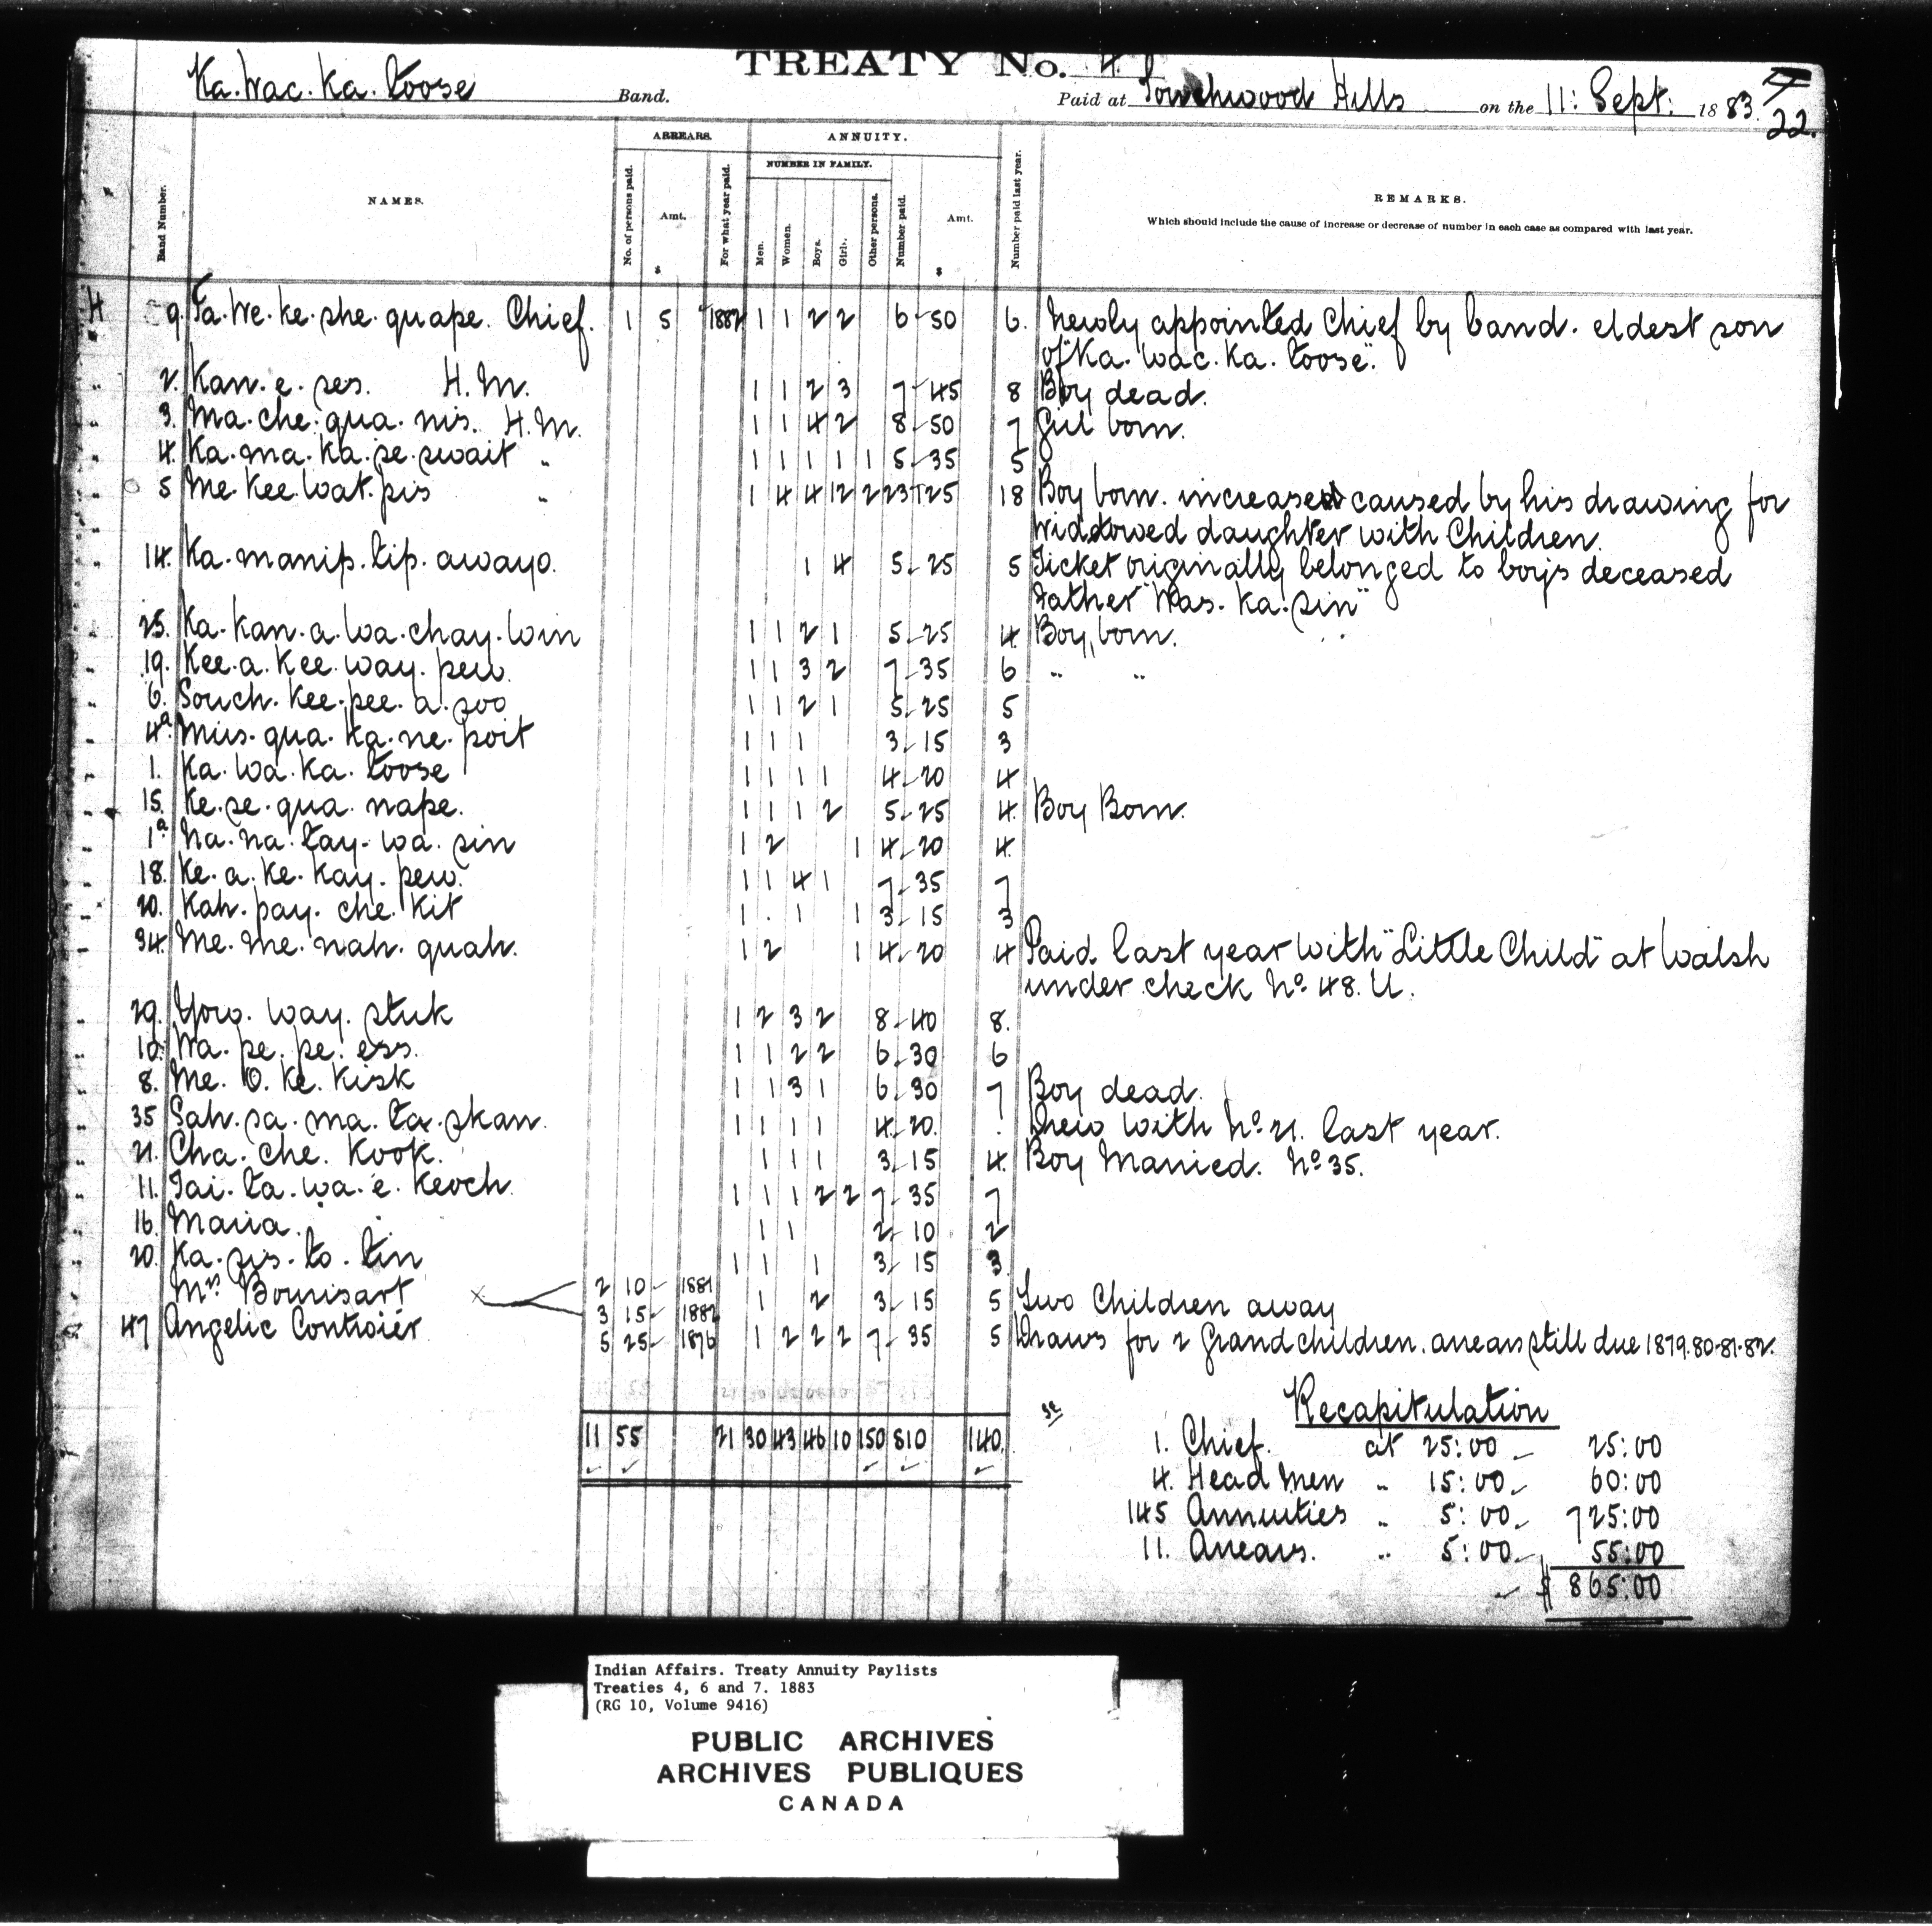 TREATY No. 4
Ka.wac.ka.toose Band. Paid at Touchwood Hills on the 11: Sept: 1883. 22.
ARREARS. ANNUITY.
NUMBER IN FAMILY.
Band Number. NAMES. No. of persons paid. Amt. $ For what year paid. Men. Women. Boys. Girls. Other persons. Number paid. Amt. $ Number paid last year. REMARKS.
Which should include the cause of increase or decrease of number in each case as compared with last year.
4 9. Ta.we.ke.she.quape. Chief. 1 5 1882 1 1 2 2 6 50 6. Newly appointed Chief by band. eldest son
of "Ka.wac.ka.toose".
2. Kan.e.ses. H.M. 1 1 2 3 7 45 8 Boy dead.
3. Ma.che.qua.nis. H.M. 1 1 4 2 8 50 7 Girl born.
4. Ka.ma.ka.se.swait " 1 1 1 1 1 5 35 5
5 Me.kee.wat.pis " 1 4 4 12 2 23 125 18 Boy born. increased caused by his drawing for
widdowed daughter with Children.
14. Ka.manip.tip.awayo. 1 4 5 25 5 Ticket originally belonged to boys deceased
father "Was.ka.sin"
25. Ka.kan.a.wa.chay.win 1 1 2 1 5 25 4. Boy born.
19. Kee.a.kee.way.pew. 1 1 3 2 7 35 6 " "
6. Souch.kee.pee.a.soo 1 1 2 1 5 25 5
4a Mus.qua.ka.ne.poit 1 1 1 3 15 3
1. Ka.wa.ka.toose 1 1 1 1 4 20 4
15. Ke.se.qua.nape. 1 1 1 2 5 25 4. Boy Born.
1a Na.na.tay.wa.sin 1 2 1 4 20 4.
18. Ke.a.ke.kay.pew. 1 1 4 1 7 35 7
20. Kah.pay.che.kit 1 . 1 1 3 15 3
34. Me.me.nah.quah. 1 2 1 4 20 4 Paid last year with "Little Child" at Walsh
under check No 48. U.
29. Yow.way.stuk 1 2 3 2 8 40 8.
10. Wa.pe.pe.ess. 1 1 2 2 6 30 6
8. Me.O.ke.kisk 1 1 3 1 6 30 7 Boy dead.
35 Sah.sa.ma.ta.skan. 1 1 1 1 4 20. . Drew with No 21. last year.
21. Cha.che.kook. 1 1 1 3 15 4. Boy Married. No 35.
11. Tai.ta.wa.e.keoch. 1 1 1 2 2 7 35 7
16. Maria. 1 1 2 10 2
20. Ka.sis.to.tin 1 1 1 3 15 3.
Mrs Bourisart 2 10 1881
3 15 1882 1 2 3 15 5 Two Children away
47 Angelic Controier 5 25 1876 1 2 2 2 7 35 5 Draws for 2 Grandchildren. arrears still due 1879.80-81-82.
11 55 21 30 43 46 10 150 810 140.
Recapitulation
1. Chief. at 25:00 25:00
4. Head Men " 15:00 60:00
145 Annuities " 5:00 725:00
11. Arrears. " 5:00 55:00
$ 865:00
Indian Affairs. Treaty Annuity Paylists
Treaties 4, 6 and 7. 1883
(RG 10, Volume 9416)
PUBLIC ARCHIVES
ARCHIVES PUBLIQUES
CANADA